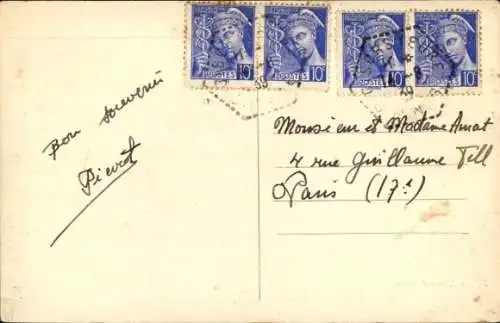 Bon souvenir
Pierrot
POSTES 10
POSTES 10
POSTES 10
POSTES 10
Monsieur et Madame Amat
4 rue Guillaume Tell
Paris (17e)